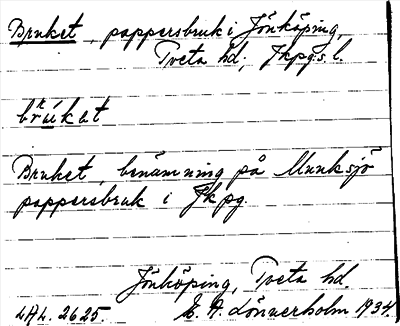 Bruket, pappersbruk i Jönköping,
Tveta hd, Jkpgs l.
brúkat
Bruket, benämning på Munksjö
pappersbruk i Jkpg.
Jönköping, Tveta hd.
LAL. 2625. E. A. Lönnerholm 1934.